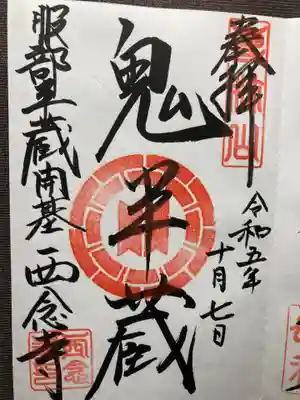 奉拝
令和五年
十月七日
鬼半蔵
服部半蔵開基西念寺
西念